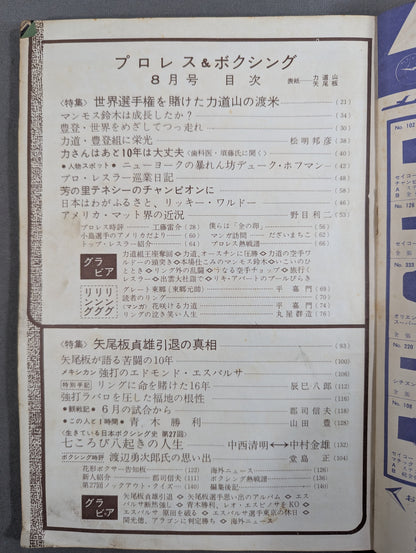 プロレス&ボクシング
8月号 目次
表紙 力道山 矢尾板
〈特集〉世界選手権を賭けた力道山の渡米 (21)
マンモス鈴木は成長したか? (34)
豊登・世界をめざしてつっ走れ (30)
力道・豊登組に栄光 松明邦彦 (38)
力さんはあと10年は大丈夫 〈歯科医・須藤氏に聞く〉 (40)
●人物スポット● ニューヨークの暴れん坊デューク・ホフマン (42)
プロ・レスラー巡業日記 (48)
芳の里テネシーのチャンピオンに (58)
日本はわがふるさと、リッキー・ワルドー (50)
アメリカ・マット界の近況 野目利二 (53)
プロレス時評 工藤雷介 (28)
小島選手のアメリカだより (60)
トップ・レスラー紹介 (64)
僕らは「金の卵」 (56)
マンガ訪問 だざいまちこ (62)
プロレス熱戦譜 (66)
グラビア
力道組王座奪回 ◇ 力道、オースチンに圧勝 ◇ 力道の空手ワルドーの頭突き ◇ 本場仕込みのマンモス鈴木 ◇ いこいのひととき ◇ リング外の乱闘 ◇ うなる空手チョップ ◇ 旅行くレスラー ◇ 出雲大社詣で ◇ リキ・アパートのプールびらき
リング リング リング
グレート東郷(東郷元帥) 平嘉門 (69)
読者のリング (70)
(マンガ) 花咲ける力道 平嘉門 (74)
リングの泣き笑い人生 丸屋群造 (76)
〈特集〉矢尾板貞雄引退の真相 (93)
矢尾板が語る苦闘の10年 (100)
メキシカン 強打のエドモンド・エスパルサ (106)
特別手記 リングに命を賭けた16年 辰巳八郎 (112)
強打ラバロを圧した福地の根性 (116)
●観戦記● 6月の試合から 郡司信夫 (118)
●この人と1時間● 青木勝利 山田豊 (108)
〈生きている日本ボクシング史 第27回〉
七ころび八起きの人生 中西清明⟷中村金雄 (132)
ボクシング時評 渡辺勇次郎氏の思い出 堂島正 (104)
花形ボクサー告知板 (122)
新人紹介 郡司信夫 (111)
第27回ノックアウト・クイズ (140)
海外ニュース (126)
ボクシング熱戦譜 (136)
編集後記 (140)
グラビア
矢尾板貞雄引退 ◇ 矢尾板選手思い出のアルバム ◇ エスパルサ断然強し ◇ 青木勝利、レオ・エスピノサをKO
エスパルサ 原田を破る ◇ エスパルサ選手東京の休日 ◇
関光徳、アラゴンに判定勝ち ◇ 海外ニュース
No. 102
No. 128
No. 333
No. 220
No. 108